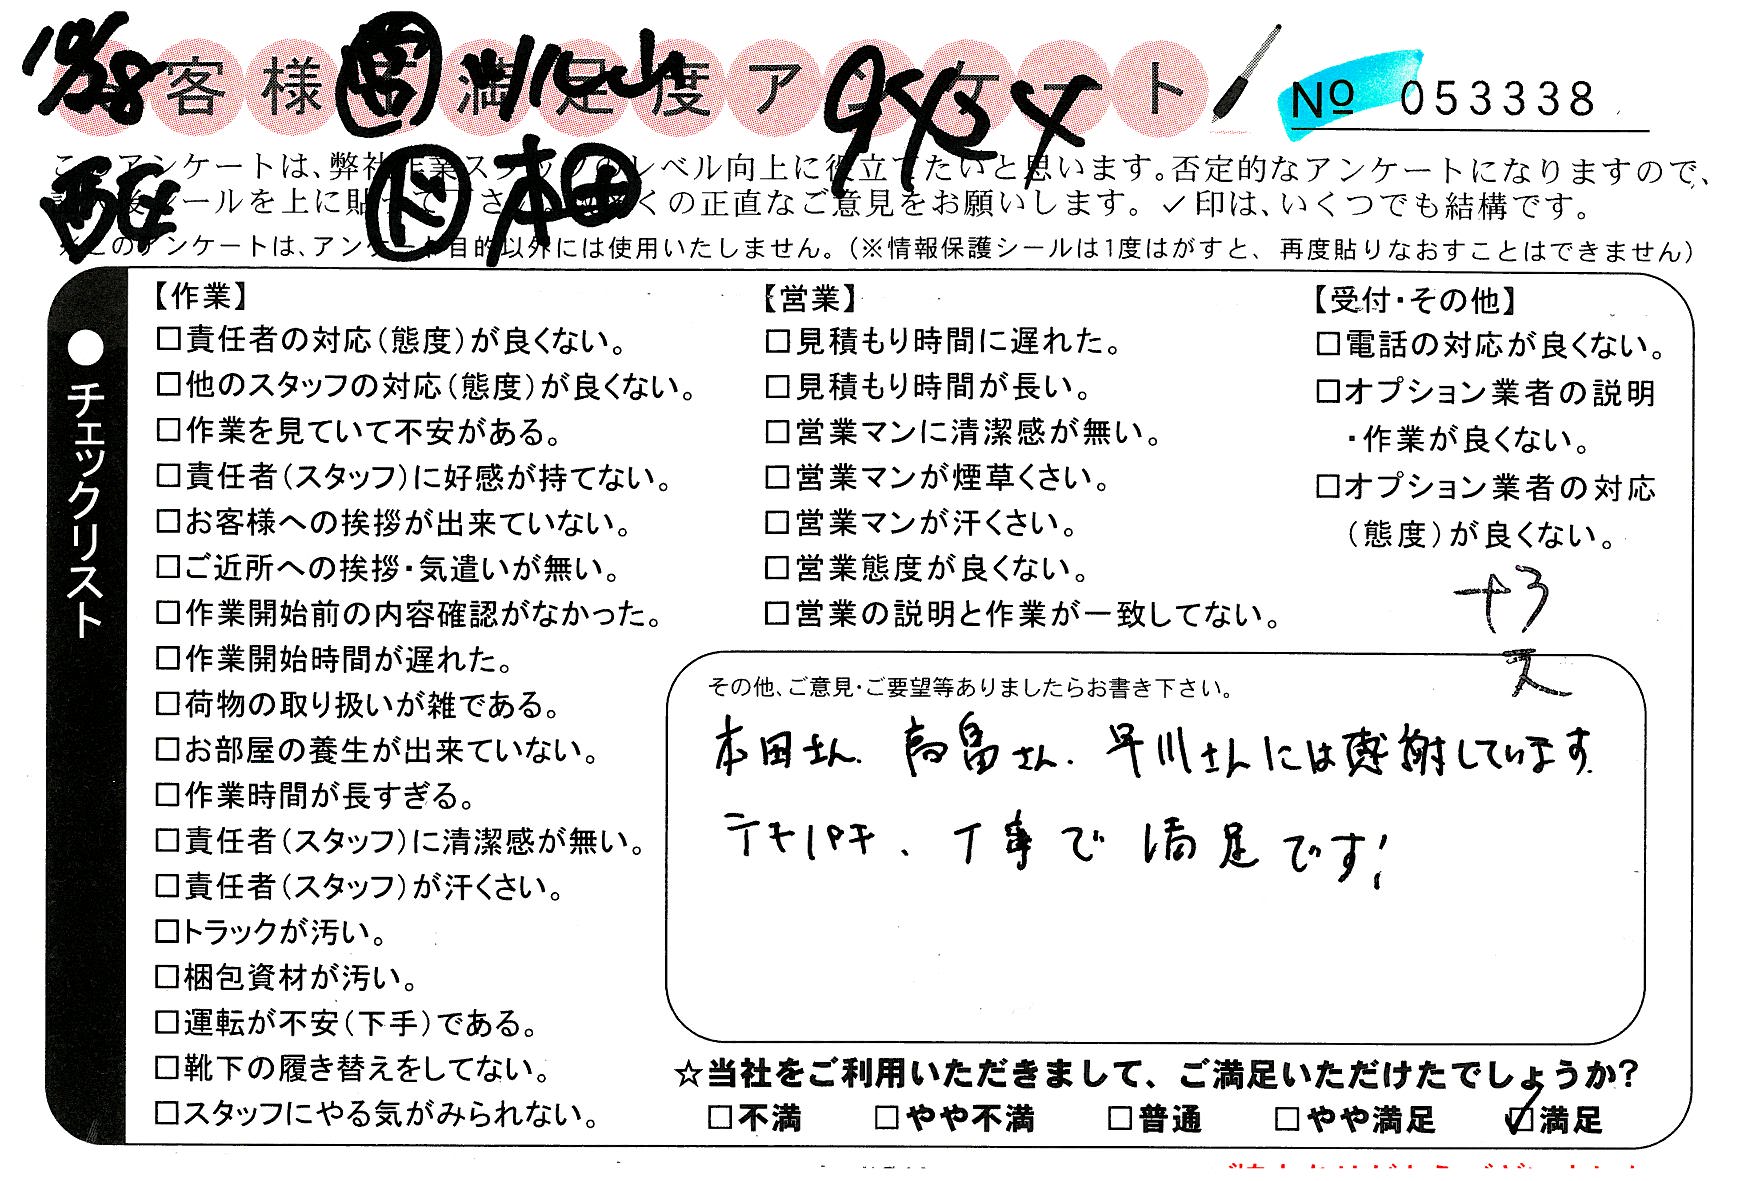 10/28 営
お客様不満足度アンケート
9434
№ 053338
ド 本田
このアンケートは、弊社作業スタッフのレベル向上に役立てたいと思います。否定的なアンケートになりますので、
シールを上に貼って下さい。くの正直なご意見をお願いします。✓印は、いくつでも結構です。
※このアンケートは、アンケート目的以外には使用いたしません。(※情報保護シールは1度はがすと、再度貼りなおすことはできません)
●チェックリスト
【作業】
□責任者の対応(態度)が良くない。
□他のスタッフの対応(態度)が良くない。
□作業を見ていて不安がある。
□責任者(スタッフ)に好感が持てない。
□お客様への挨拶が出来ていない。
□ご近所への挨拶・気遣いが無い。
□作業開始前の内容確認がなかった。
□作業開始時間が遅れた。
□荷物の取り扱いが雑である。
□お部屋の養生が出来ていない。
□作業時間が長すぎる。
□責任者(スタッフ)に清潔感が無い。
□責任者(スタッフ)が汗くさい。
□トラックが汚い。
□梱包資材が汚い。
□運転が不安(下手)である。
□靴下の履き替えをしてない。
□スタッフにやる気がみられない。
【営業】
□見積もり時間に遅れた。
□見積もり時間が長い。
□営業マンに清潔感が無い。
□営業マンが煙草くさい。
□営業マンが汗くさい。
□営業態度が良くない。
□営業の説明と作業が一致してない。
【受付・その他】
□電話の対応が良くない。
□オプション業者の説明
・作業が良くない。
□オプション業者の対応
(態度)が良くない。
+3
その他、ご意見・ご要望等ありましたらお書き下さい。
本田さん、高畠さん、早川さんには感謝しています
テキパキ、丁寧で満足です!
☆当社をご利用いただきまして、ご満足いただけたでしょうか?
□不満 □やや不満 □普通 □やや満足 ☑満足